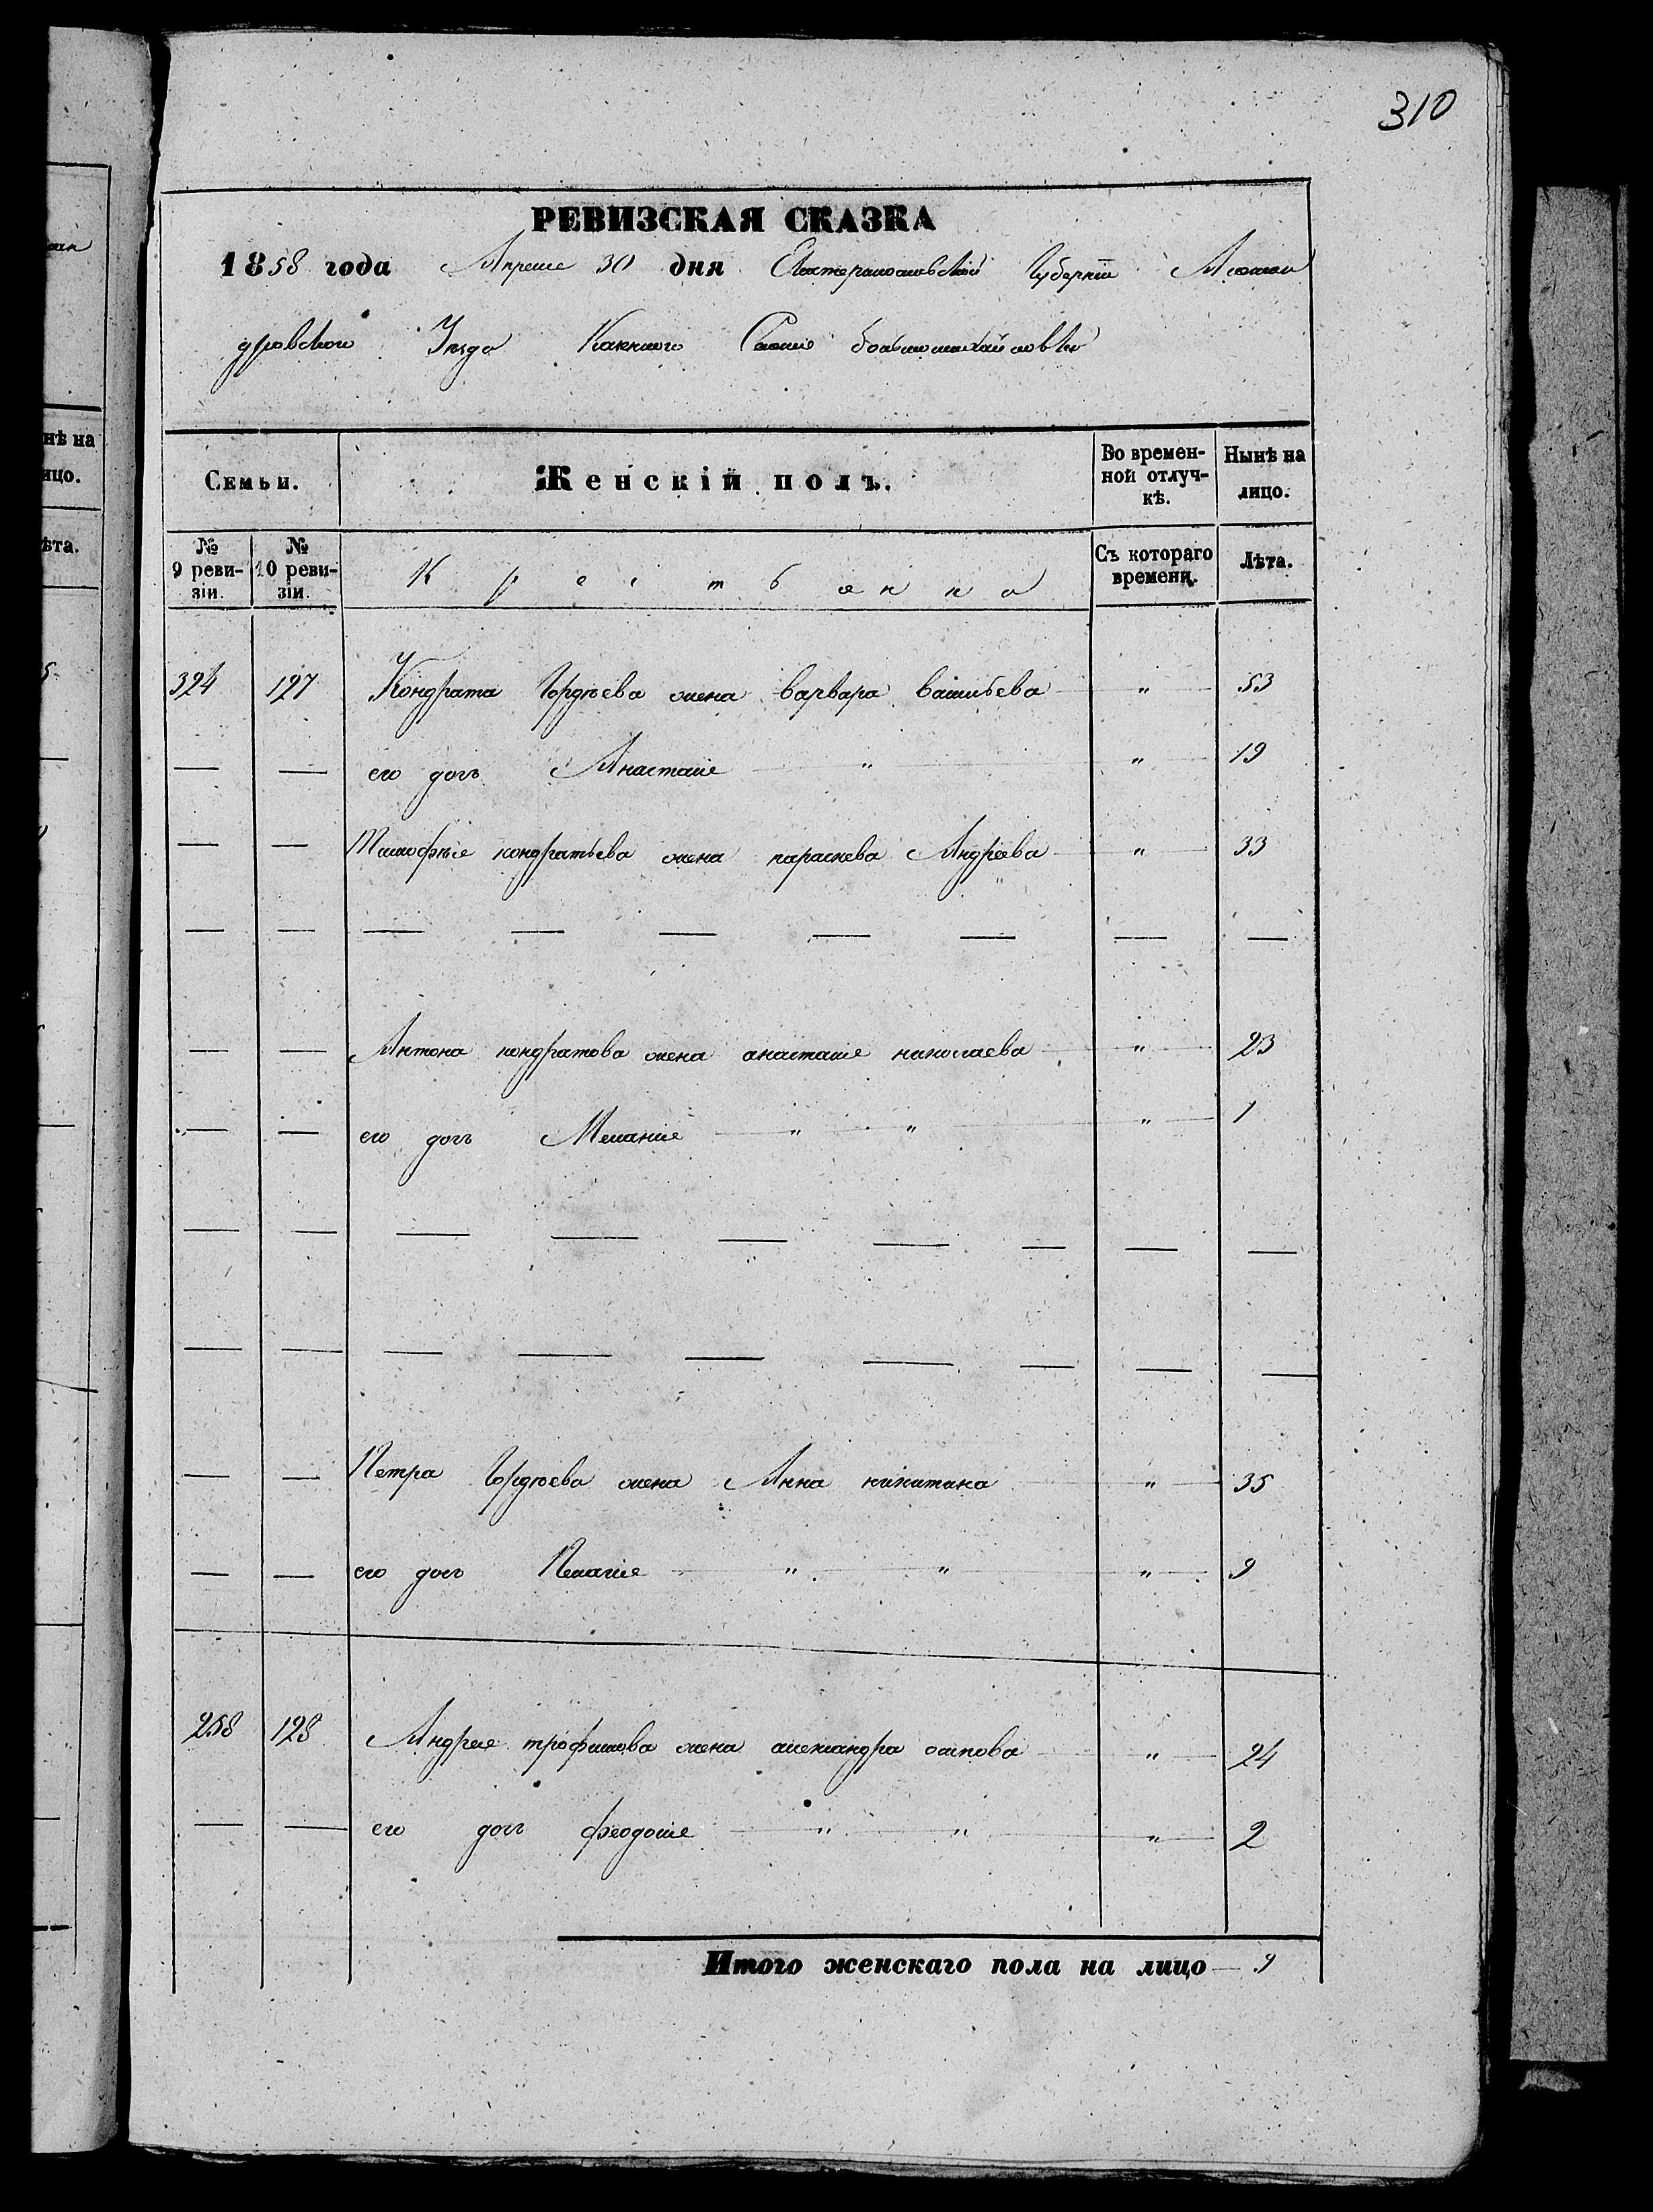 310
РЕВИЗСКАЯ СКАЗКА
1858 года Апреле 30 дня Екатеринославской Губернии Алексан
дровского Уезда Казенного Селение большомихайловки
нѣ на
ицо.
ѣта.
Семьи. Женскій полъ. Во времен-ной отлуч-кѣ. Нынѣ на лицо.
№ 9 реви-зіи. № 10 реви-зіи. Крестьянка Съ котораго времени. Лѣта.
324 127 Кондрата Гордѣева жена варвара васильева " 53
— — его дочь Анастасие " " 19
— — Тимофѣе кондратьева жена параскева Андреева " 33
— — — — — — — — —
— — Антона кондратова жена анастасие николаева " 23
— — его дочь Мелание " " " 1
— — — — — — — — —
— — — — — — — — —
— — Петра Гордѣева жена Анна никитина " 35
— — его дочь Пелагие " " " 9
258 128 Андрее трофимова жена александра осипова " 24
— — его дочь феодосие " " " 2
Итого женскаго пола на лицо — 9